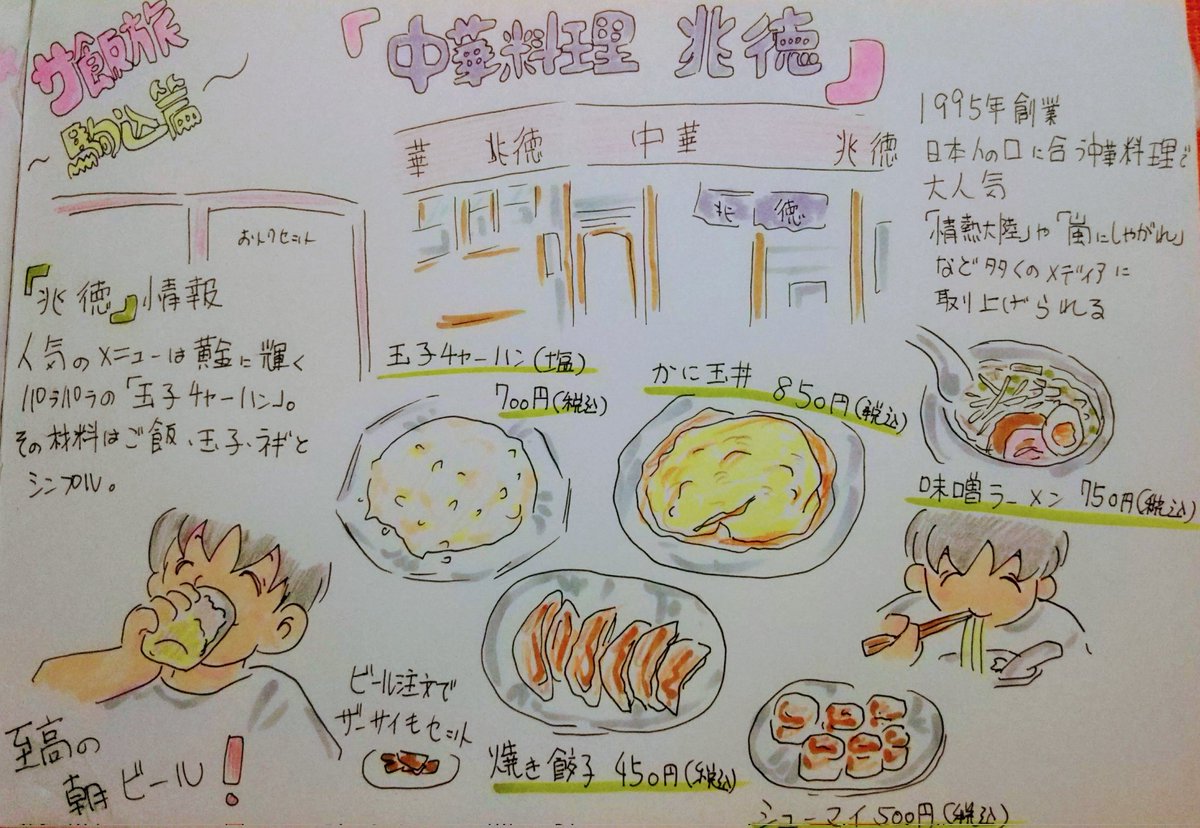 サ飯旅
~駒込篇~
『中華料理 兆徳』
華 兆徳 中華 兆徳
兆 徳
おトクセット
1995年創業
日本人の口に合う中華料理で
大人気
「情熱大陸」や「嵐にしやがれ」
など多くのメディアに
取り上げられる
『兆徳』情報
人気のメニューは黄金に輝く
パラパラの「玉子チャーハン」。
その材料はご飯、玉子、ネギと
シンプル。
玉子チャーハン(塩)
700円(税込)
かに玉丼 850円(税込)
味噌ラーメン 750円(税込)
ビール注文で
ザーサイもセット
焼き餃子 450円(税込)
シューマイ 500円(税込)
至高の
朝ビール!